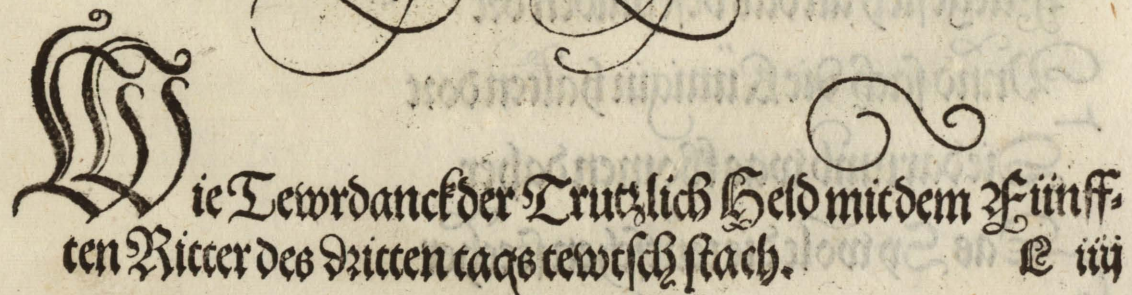 Wie Tewrdanck der Trutzlich Held mit dem Fünff-
ten Ritter des dritten tags tewtsch stach. E iiij